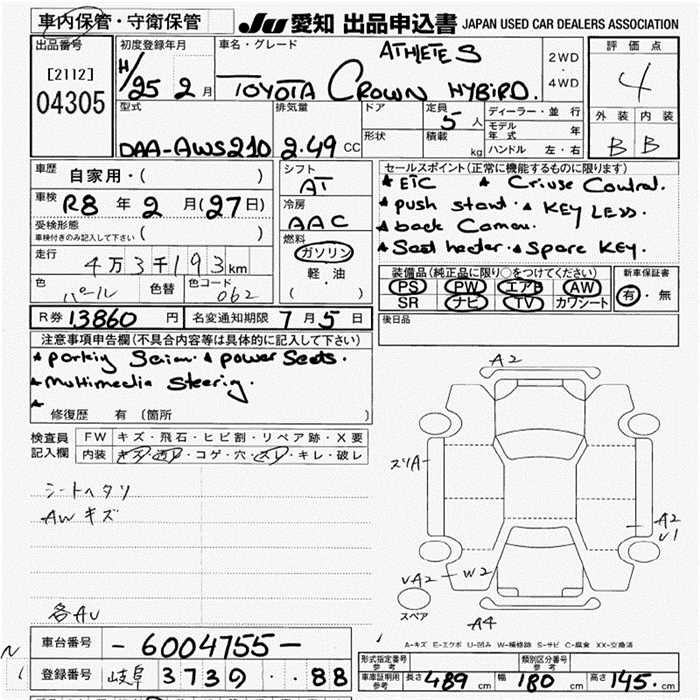 車内保管・守衛保管
JU 愛知 出品申込書 JAPAN USED CAR DEALERS ASSOCIATION
出品番号
[2112]
04305
初度登録年月
H/25 2 月
車名・グレード
ATHLETE S
TOYOTA CROWN HYBIRD.
2WD
・
4WD
評価点
4
外装 内装
B B
型式
DAA-AWS210
排気量
2.49 CC
ドア
形状
定員
5 人
積載
kg
ディーラー・並行
モデル年式 年
ハンドル 左・右
車歴
自家用・( )
車検
R8 年 2 月(27日)
受検形態
車検付きのみ記入して下さい ( )
走行
4万3千193km
色
パール
色替
色コード
062
シフト
AT
冷房
AAC
燃料
ガソリン
軽・油
( )
セールスポイント(正常に機能するものに限ります)
ETC Criuse Control.
push stand. KEY LESS.
back Camou.
Seat heater. Spare KEY.
装備品(純正品に限り○をつけてください)
PS PW エアB AW
SR ナビ TV カワシート
新車保証書
有・無
R券 13860 円 名変通知期限 7月5日
後日品
注意事項申告欄(不具合内容等は具体的に記入して下さい)
power Seats.
multimedia Steering.
修復歴 有 (箇所 )
検査員記入欄
FW キズ・飛石・ヒビ割・リペア跡・X要
内装 キズ・汚レ・コゲ・穴・スレ・キレ・破レ
シートヘタリ
AW キズ
A2
スリA
A2
U1
W2
スペア
A4
A-キズ E-エクボ U-凹み W-補修跡 S-サビ C-腐食 XX-交換済
車台番号 -6004755-
登録番号 岐阜 3730 ・・88
型式指定番号 参考
類別区分番号 参考
車庫証明用 参考 長さ 489 cm 幅 180 cm 高さ 145. cm